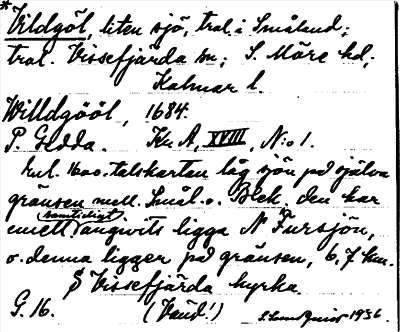 *Vildgöl, liten sjö, tral. i Småland;
tral. Vissefjärda sn; S. Möre hd;
Kalmar l.
Willdgööl, 1684.
P. Gedda. Ku A, XVIII, N:o 1.
Enl. 1600-talskartan låg sjön på själva
gränsen mell. Smål. o. Blek. den har
emell samtidigt angivits ligga N Fursjön,
o. denna ligger på gränsen, 6,7 km.
S Vissefjärda kyrka.
G. 16. (Vänd!) 1936